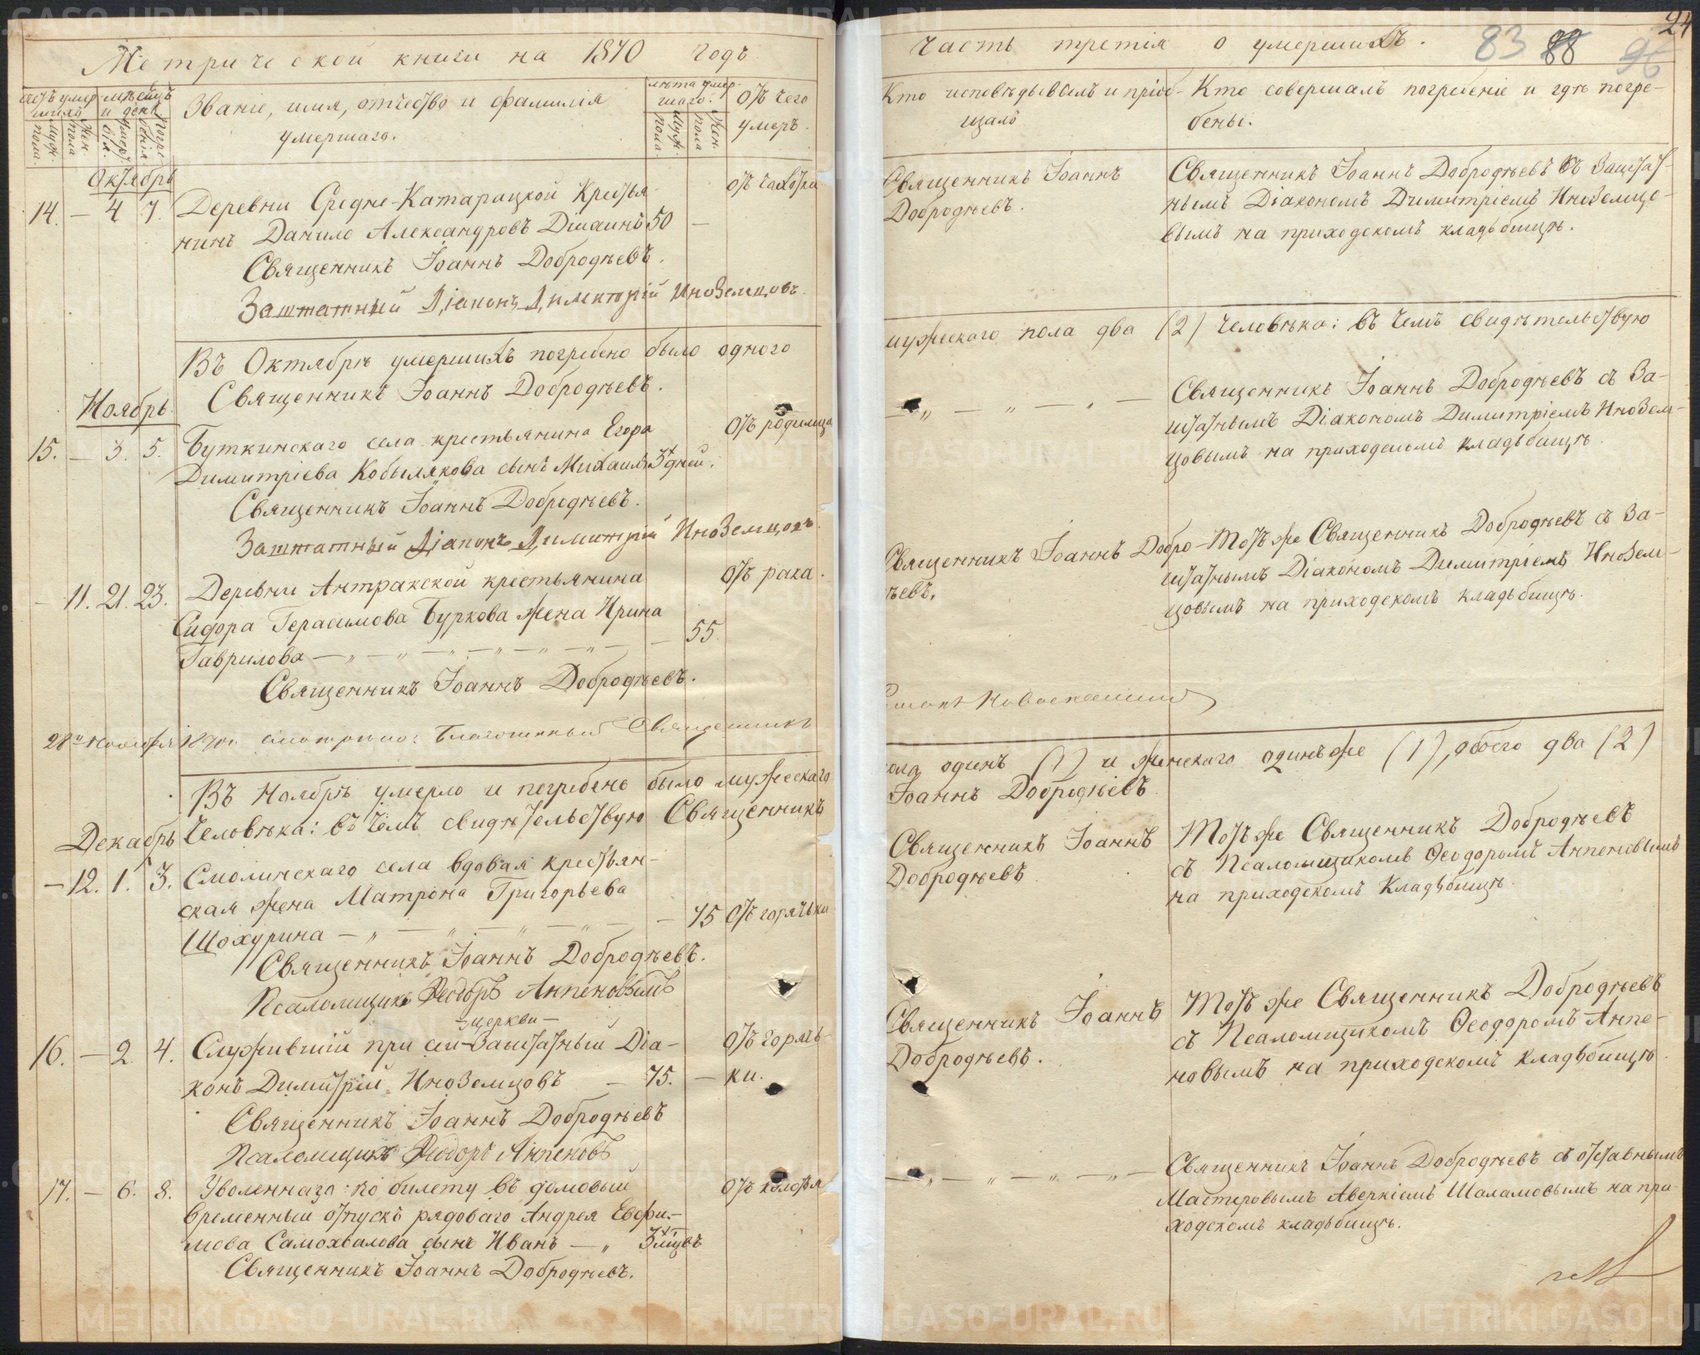 Метрической книги на 1870 годъ
Счетъ умершихъ
Мѣсяцъ и день
Званіе, имя, отчество и фамилія
умершаго.
Лѣта умершаго.
Отъ чего
умеръ.
муж. пола
жен. пола
Октябрь
14. — 4 7. Деревни Средне-Катарацкой Крестья
нинъ Данило Александровъ 50 —
отъ чахотки
Священникъ Іоаннъ Добродѣевъ.
Заштатный Діаконъ Димитрій Иноземцовъ.
Въ Октябрѣ умершихъ погребено было одного
Священникъ Іоаннъ Добродѣевъ.
Ноябрь
15. — 3. 5. Буткинскаго села крестьянина Егора
Димитріева Кобылякова сынъ Михаилъ 3 дней.
отъ родимца
Священникъ Іоаннъ Добродѣевъ.
Заштатный Діаконъ Димитрій Иноземцовъ.
— 11. 21. 23. Деревни Антракской крестьянина
Сидора Герасимова Буркова жена Ирина
Гаврилова — „ — „ — „ — „ — 55
отъ рака.
Священникъ Іоаннъ Добродѣевъ.
28го Ноября 1870г. смотрено: Благочинный Священникъ
Въ Ноябрѣ умерло и погребено было мужескаго
Декабрь
человѣка: въ чемъ свидѣтельствую Священникъ
— 12. 1. 3. Смолинскаго села вдовая крестьян-
ская жена Матрона Григорьева
Шохурина — „ — „ — „ — 75 отъ горячьки
Священникъ Іоаннъ Добродѣевъ.
Псаломщикъ Ѳеодоръ
церкви
16. — 2. 4. Служившій при сей Заштатный Діа-
конъ Димитрій Иноземцовъ — 75. —
отъ горячь-
ки.
Священникъ Іоаннъ Добродѣевъ
Псаломщикъ Ѳеодоръ Анпеновъ
17. — 6. 8. Уволеннаго по билету въ домовый
временный отпускъ рядоваго Андрея Евфи-
мова Самохвалова сынъ Иванъ — „ 3 мцвъ
Священникъ Іоаннъ Добродѣевъ.
Часть третія о умершихъ.
83 88 96
24
Кто исповѣдывалъ и пріоб-
щалъ
Кто совершалъ погребеніе и гдѣ погре-
бены.
Священникъ Іоаннъ
Добродѣевъ.
Священникъ Іоаннъ Добродѣевъ съ Заштат-
нымъ Діакономъ Димитріемъ Иноземцо-
вымъ на приходскомъ кладьбищѣ.
мужескаго пола два (2) человѣка: въ чемъ свидѣтельствую
— „ — „ — „ —
Священникъ Іоаннъ Добродѣевъ съ За-
штатнымъ Діакономъ Димитріемъ Инозем-
цовымъ на приходскомъ кладьбищѣ.
Священникъ Іоаннъ Добро-
ѣевъ.
Тотъ же Священникъ Добродѣевъ съ За-
штатнымъ Діакономъ Димитріемъ Инозем-
цовымъ на приходскомъ кладьбищѣ.
пола одинъ (1) и женскаго одинъ же (1), обоего два (2)
Іоаннъ Добродѣевъ
Священникъ Іоаннъ
Добродѣевъ
Тотъ же Священникъ Добродѣевъ
съ Псаломщикомъ Ѳеодоромъ Анпеновымъ
на приходскомъ Кладьбищѣ.
Священникъ Іоаннъ
Добродѣевъ.
Тотъ же Священникъ Добродѣевъ
съ Псаломщикомъ Ѳеодоромъ Анпе-
новымъ на приходскомъ кладьбищѣ.
— „ — „ — „ —
Священникъ Іоаннъ Добродѣевъ съ отставнымъ
Мастеровымъ Аверкіемъ Шаламовымъ на при-
ходскомъ кладьбищѣ.
METRIKI.GASO-URAL.RU